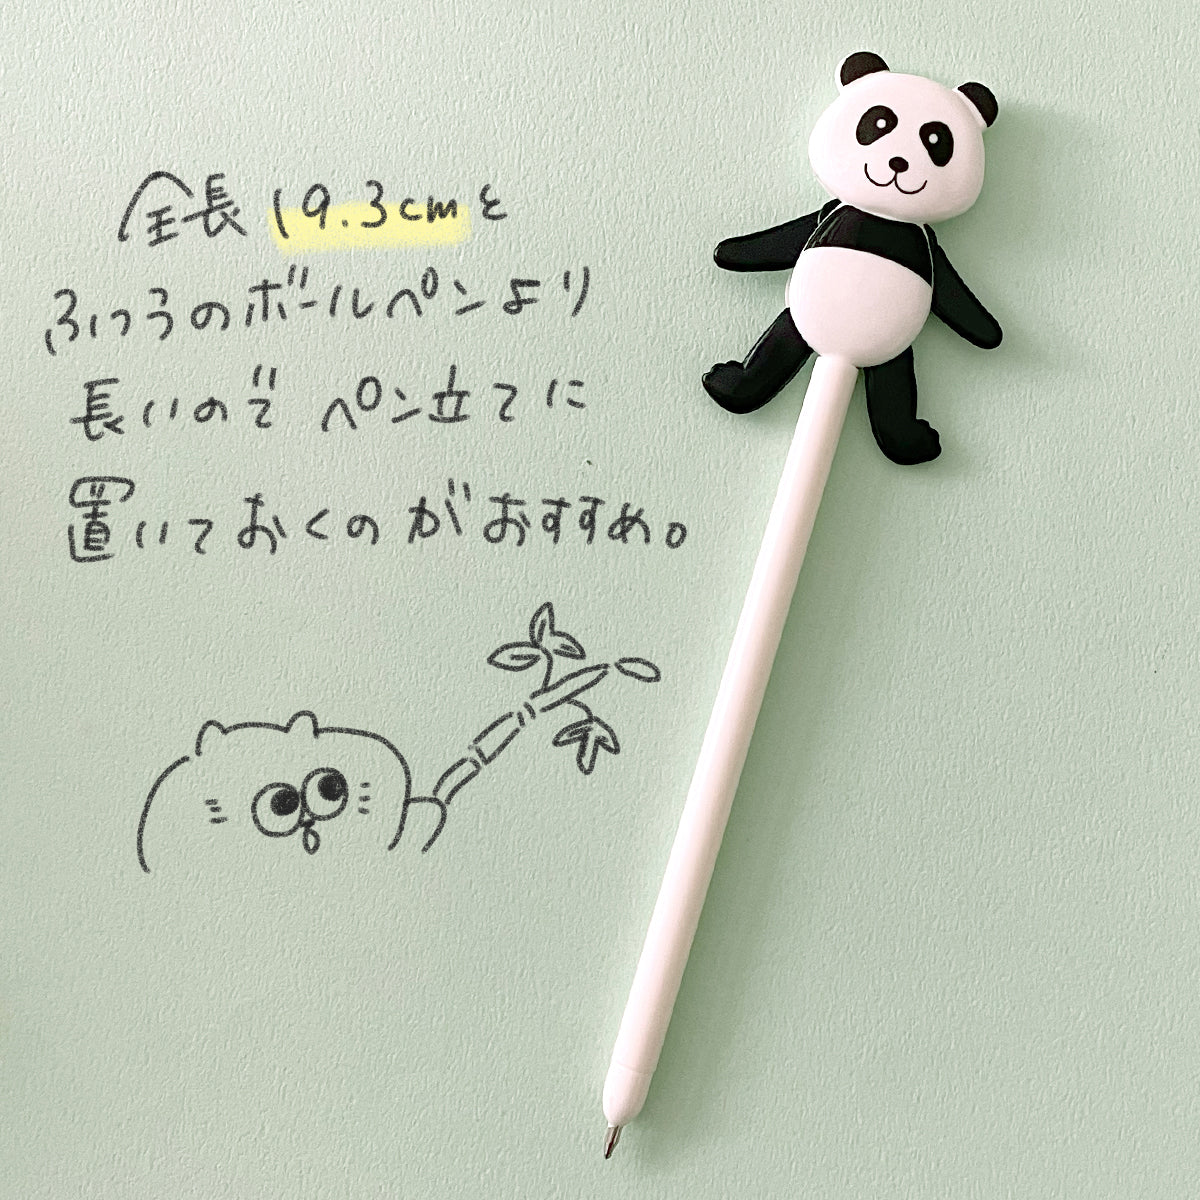 全長19.3cmと
ふつうのボールペンより
長いので ペン立てに
置いておくのがおすすめ。